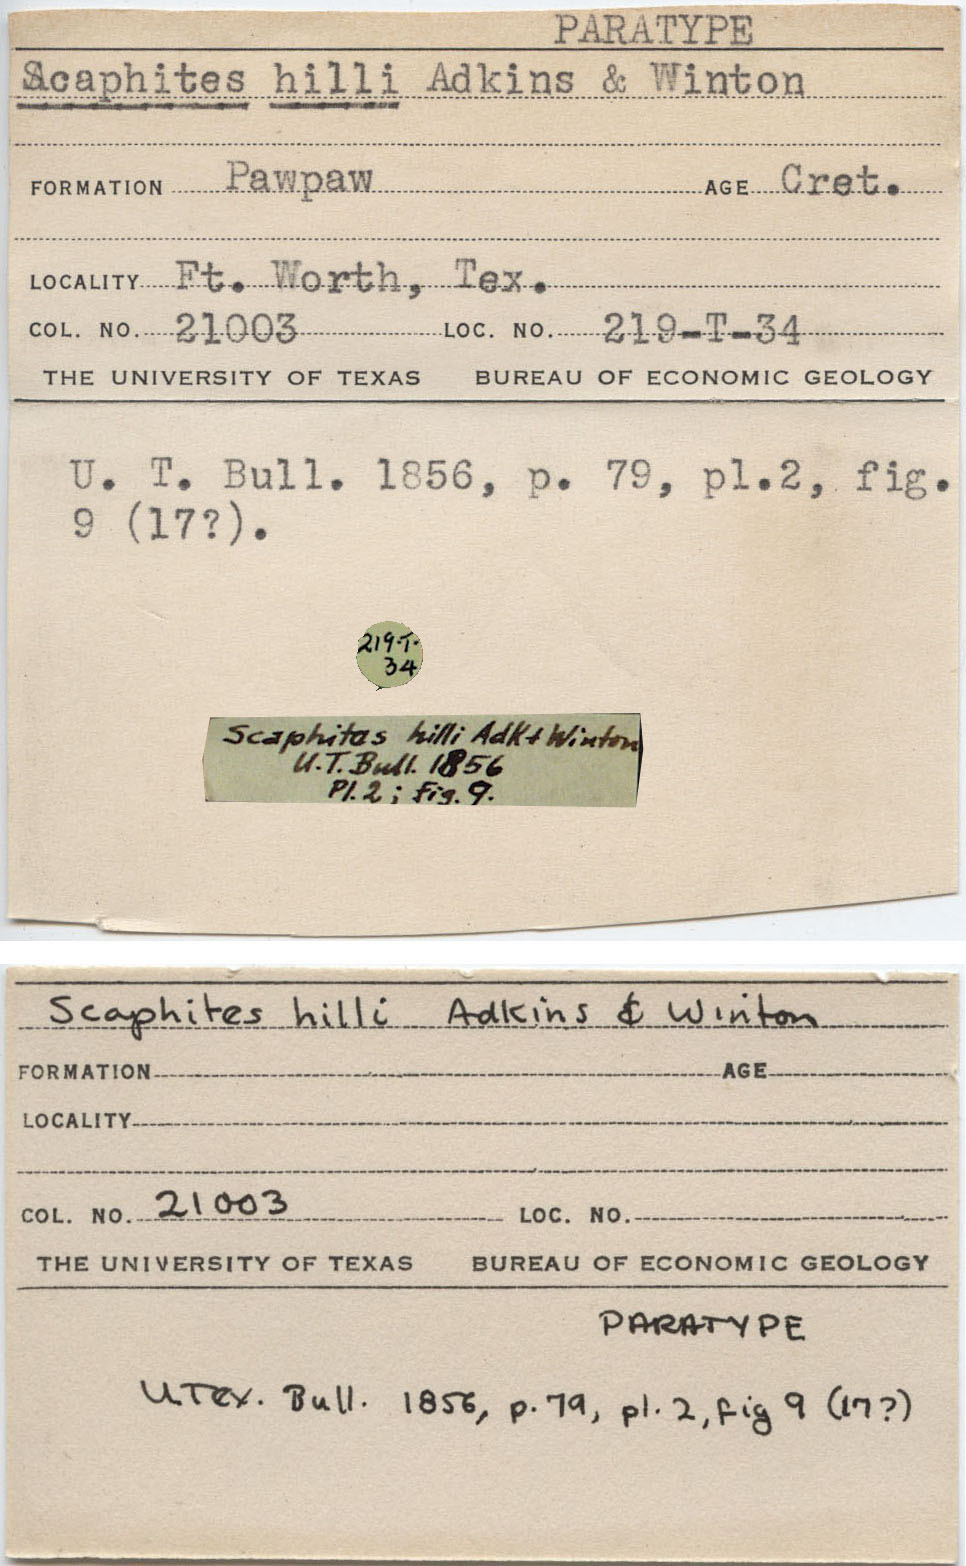 PARATYPE
Scaphites hilli Adkins & Winton
FORMATION Pawpaw AGE Cret.
LOCALITY Ft. Worth, Tex.
COL. NO. 21003 LOC. NO. 219-T-34
THE UNIVERSITY OF TEXAS BUREAU OF ECONOMIC GEOLOGY
U. T. Bull. 1856, p. 79, pl.2, fig.
9 (17?).
219-T-
34
Scaphites hilli Adk & Winton
U.T. Bull. 1856
Pl. 2; fig. 9.
Scaphites hilli Adkins & Winton
FORMATION AGE
LOCALITY
COL. NO. 21003 LOC. NO.
THE UNIVERSITY OF TEXAS BUREAU OF ECONOMIC GEOLOGY
PARATYPE
UTex. Bull. 1856, p. 79, pl. 2, fig 9 (17?)